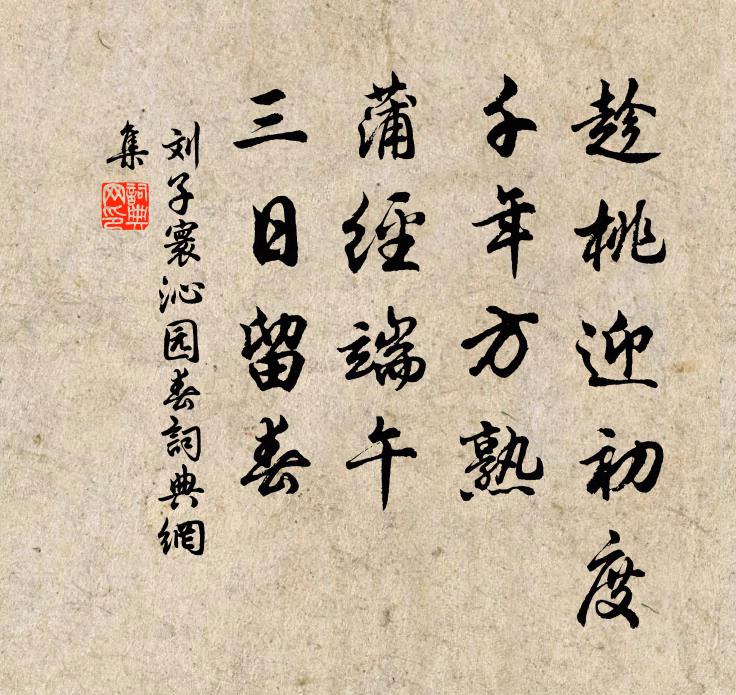 趁桃迎初度
千年方熟
蒲經端午
三日留春
刘子寰沁园春詞典網
集
詞典
网印